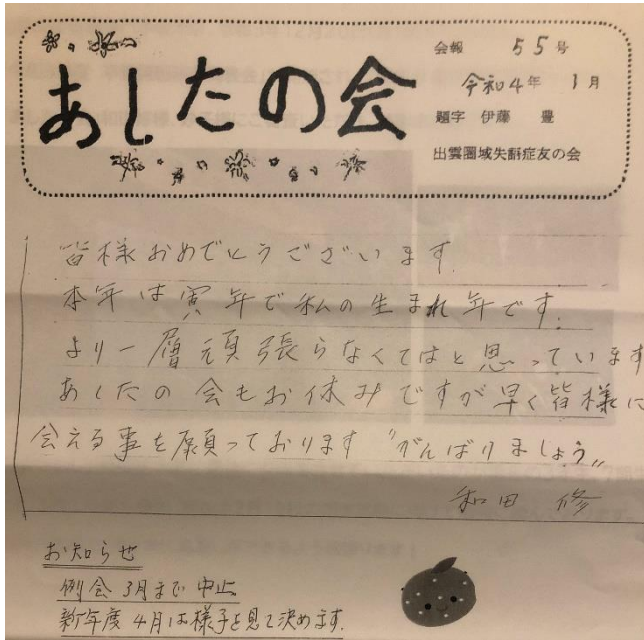 あしたの会
会報 55号
令和4年 1月
題字 伊藤 豊
出雲圏域失語症友の会
皆様おめでとうございます。
本年は寅年で私の生まれ年です。
より一層頑張らなくてはと思っています
あしたの会もお休みですが早く皆様に
会える事を願っております〝がんばりましょう〟
和田 修
お知らせ
例会 3月まで中止
新年度 4月は様子を見て決めます。